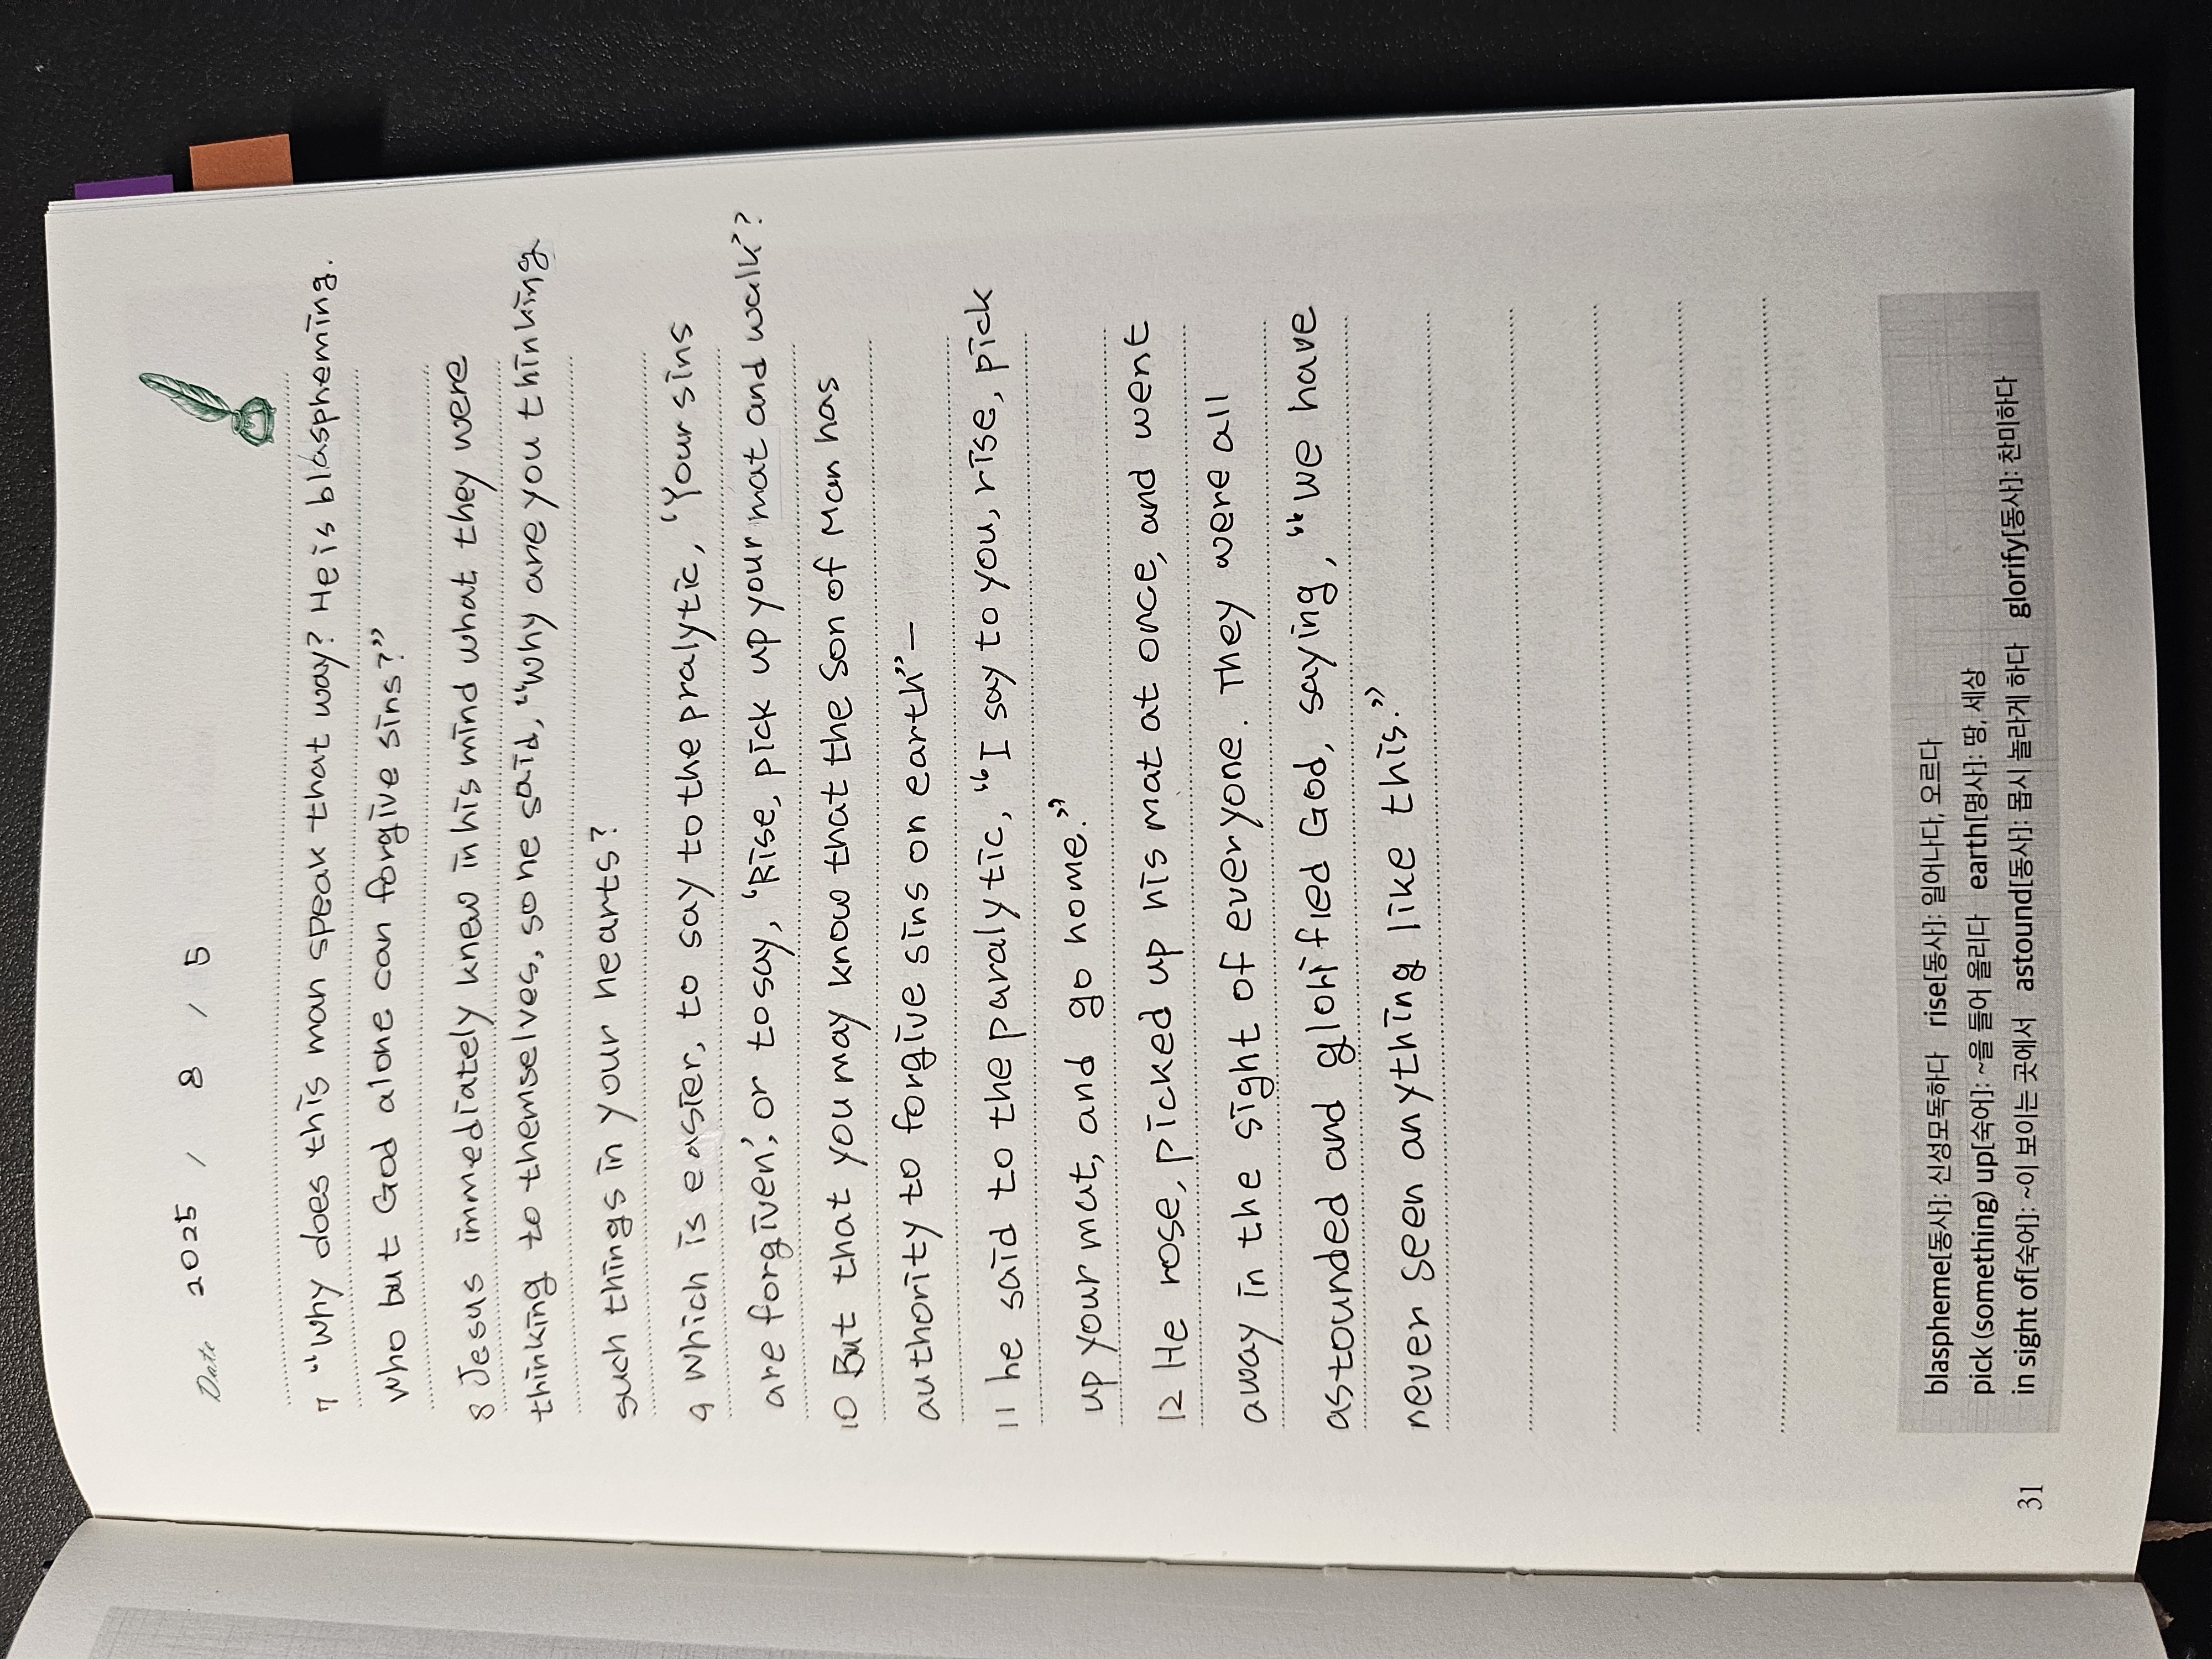 Date 2025 / 8 / 5
7 "Why does this man speak that way? He is blaspheming.
Who but God alone can forgive sins?"
8 Jesus immediately knew in his mind what they were
thinking to themselves, so he said, "Why are you thinking
such things in your hearts?
9 Which is easier, to say to the pralytic, 'Your sins
are forgiven,' or to say, 'Rise, pick up your mat and walk'?
10 But that you may know that the Son of Man has
authority to forgive sins on earth"—
11 he said to the paralytic, "I say to you, rise, pick
up your mat, and go home."
12 He rose, picked up his mat at once, and went
away in the sight of everyone. They were all
astounded and glorified God, saying, "We have
never seen anything like this."
blaspheme[동사]: 신성모독하다 rise[동사]: 일어나다, 오르다
pick (something) up[숙어]: ~을 들어 올리다 earth[명사]: 땅, 세상
in sight of[숙어]: ~이 보이는 곳에서 astound[동사]: 몹시 놀라게 하다 glorify[동사]: 찬미하다
31